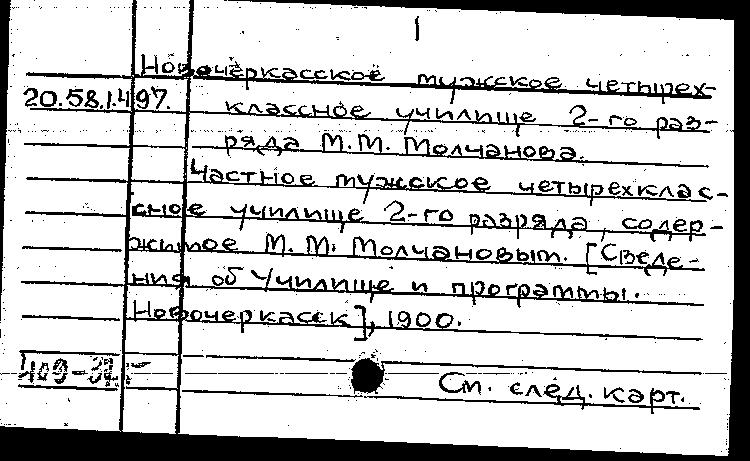 1
Новочеркасское мужское четырех-
20.58.1.497.
классное училище 2-го раз-
ряда М.М. Молчанова.
Частное мужское четырехклас-
сное училище 2-го разряда, содер-
жимое М.М. Молчановым. [Сведе-
ния об Училище и программы.
Новочеркасск], 1900.
См. след. карт.